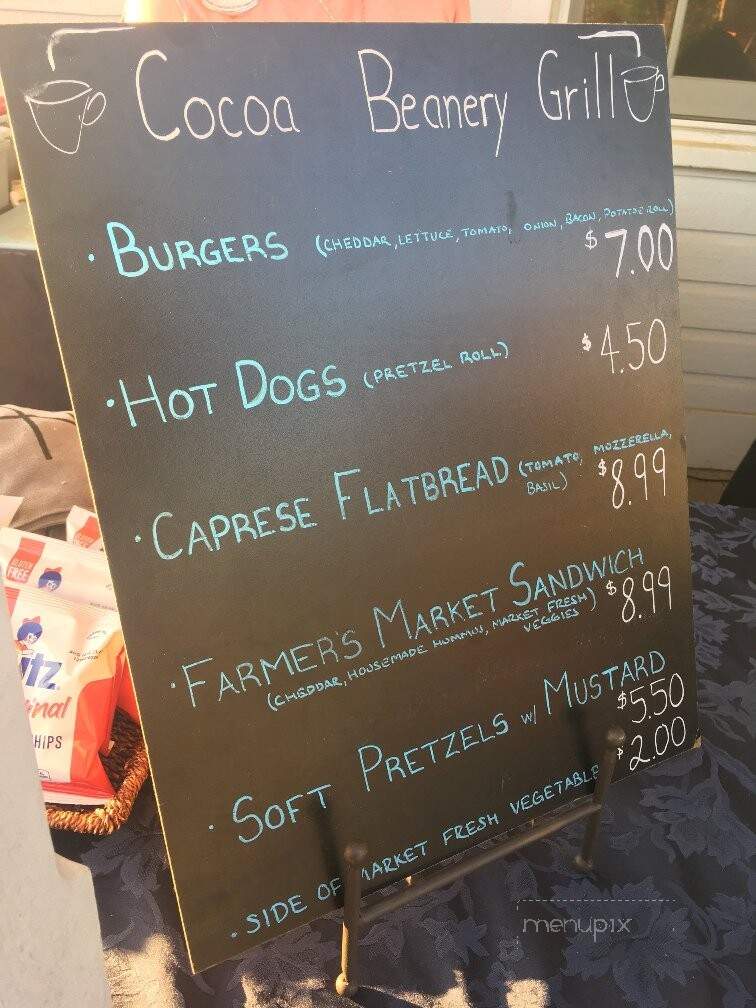 Cocoa Beanery Grill
· BURGERS (CHEDDAR, LETTUCE, TOMATO, ONION, BACON, POTATOE ROLL)
$7.00
· HOT DOGS (PRETZEL ROLL) $4.50
· CAPRESE FLATBREAD (TOMATO, MOZZERELLA,
BASIL) $8.99
· FARMER'S MARKET SANDWICH
(CHEDDAR, HOUSEMADE HUMMUS, MARKET FRESH
VEGGIES) $8.99
· SOFT PRETZELS w/ MUSTARD
$5.50
· SIDE OF MARKET FRESH VEGETABLE $2.00
GLUTEN
FREE
tz
inal
HIPS
menupix